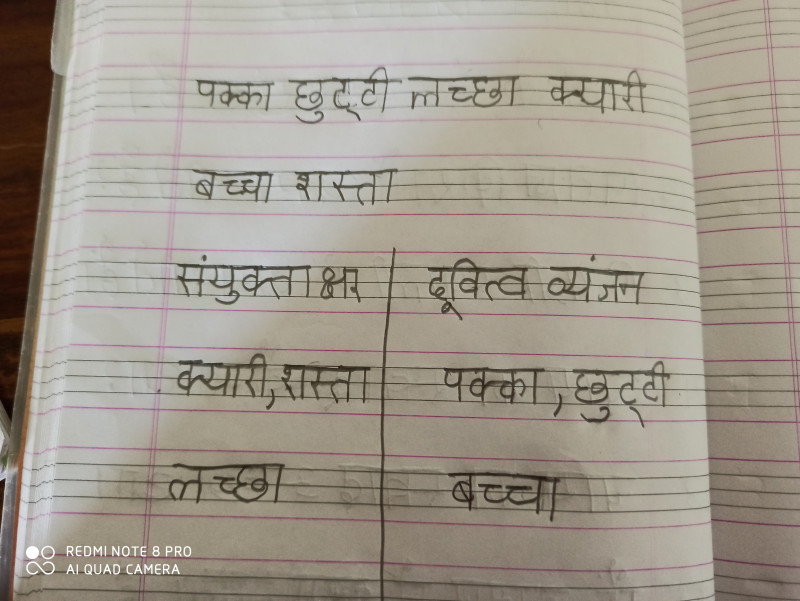 पक्का छुट्टी लच्छा क्यारी
बच्चा शस्ता
संयुक्ता क्षर द्वित्व व्यंजन
क्यारी, शस्ता पक्का, छुट्टी
लच्छा बच्चा
REDMI NOTE 8 PRO
AI QUAD CAMERA